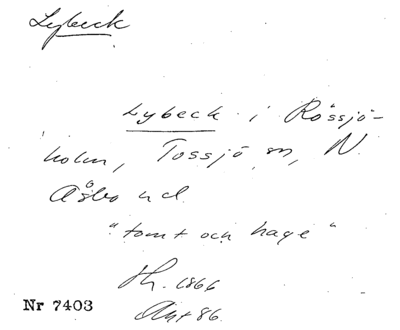 Lybeck
Lybeck i Rössjö-
holm, Tossjö sn, N.
Åsbo hd
"tomt och hage"
Th. 1866
Ant 86.
Nr 7403